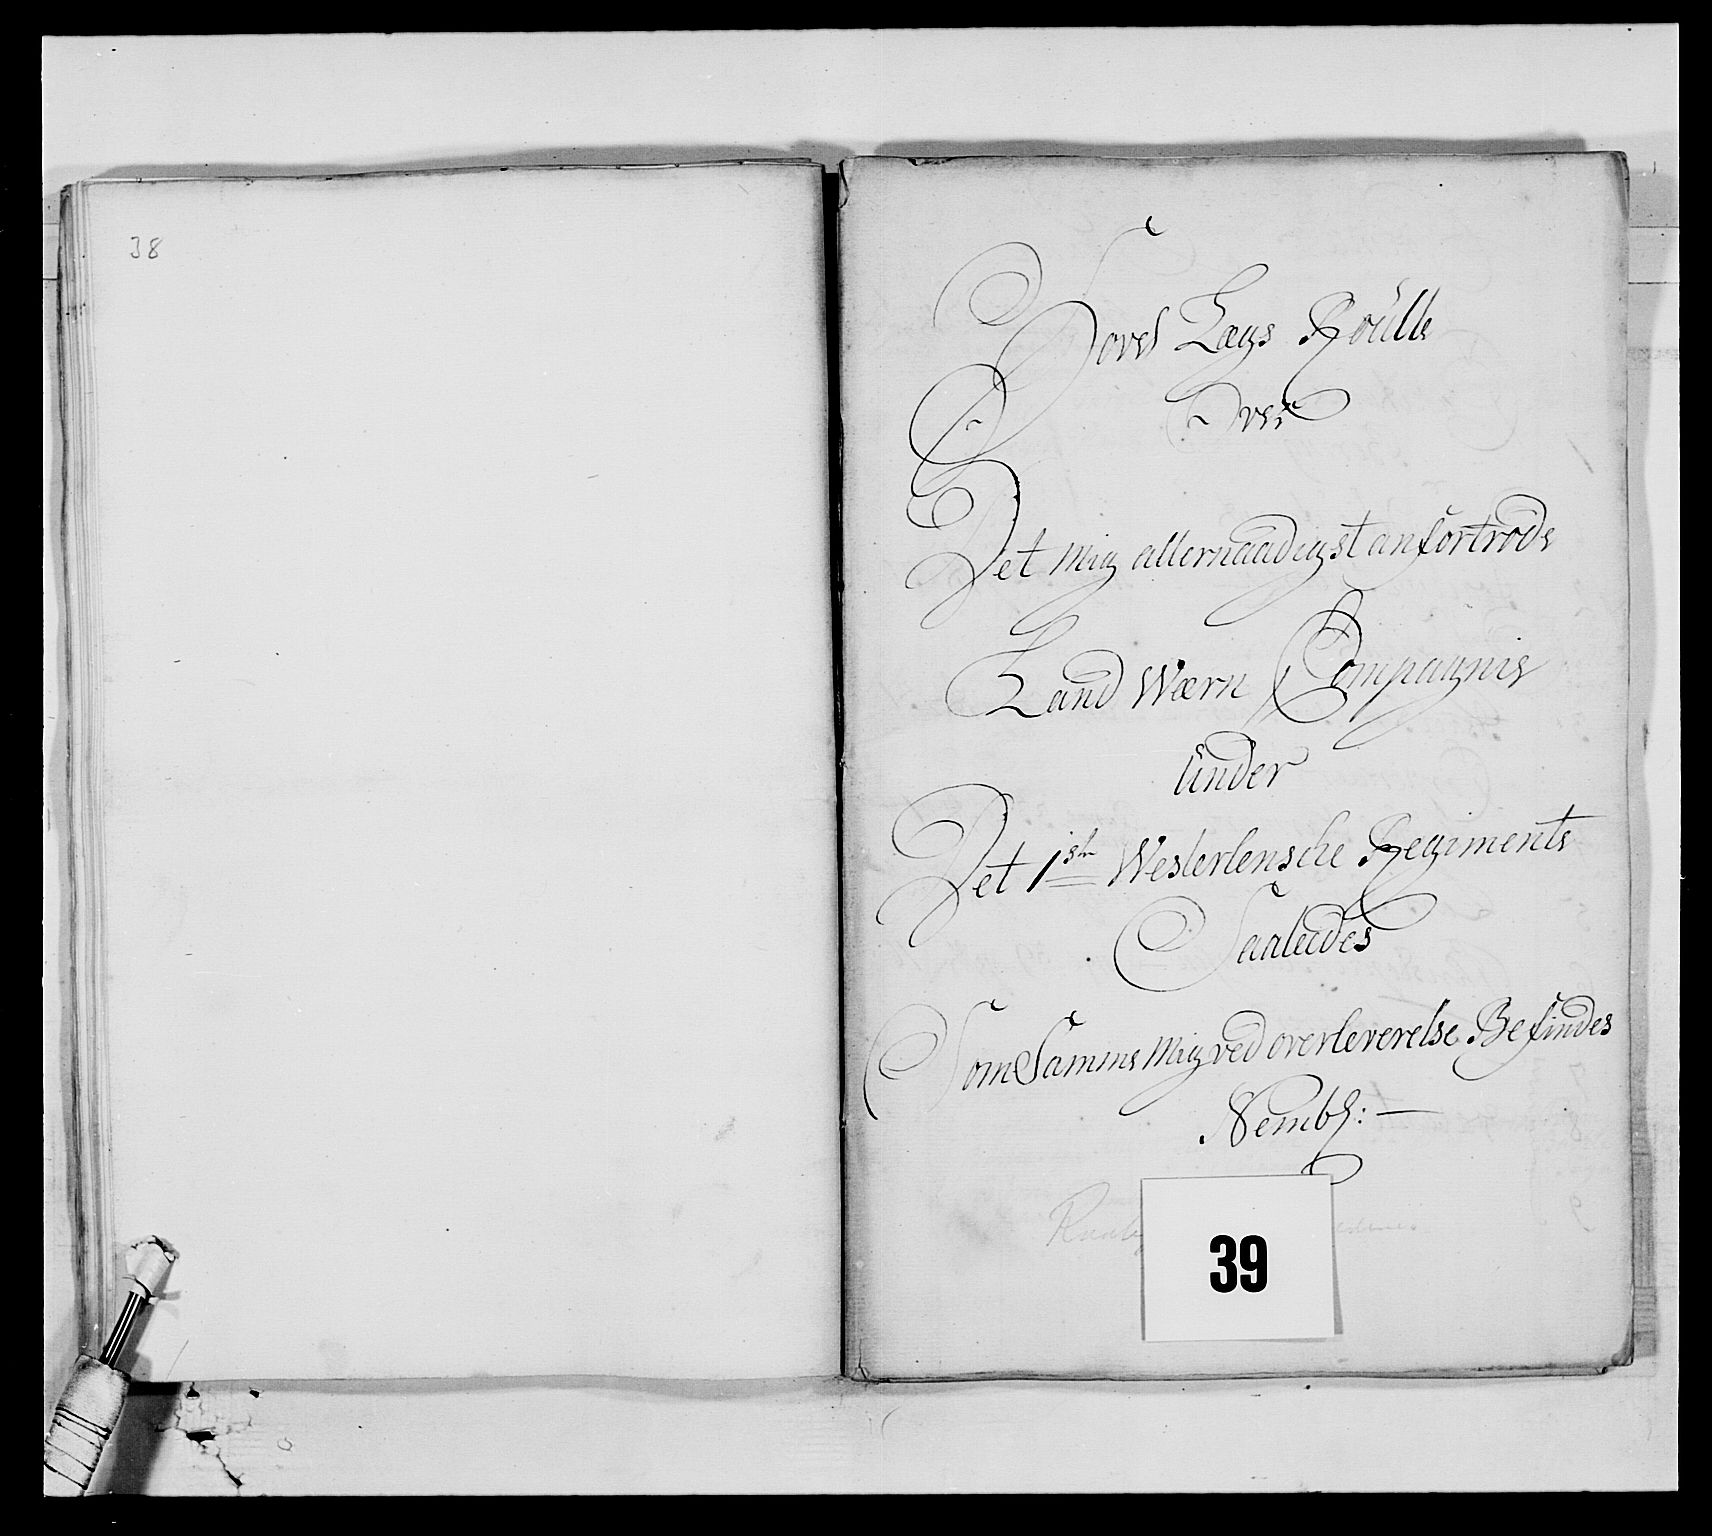 38
Hoved Lægs Roülle
Over
Det mig allernaadigst anfortrode
Land Wærn Compagnie
ünder
Det 1ste Westerlensche Regimente
Saaledes
Som Samme Mig ved overleverelse Befindes
Nembl: —
39